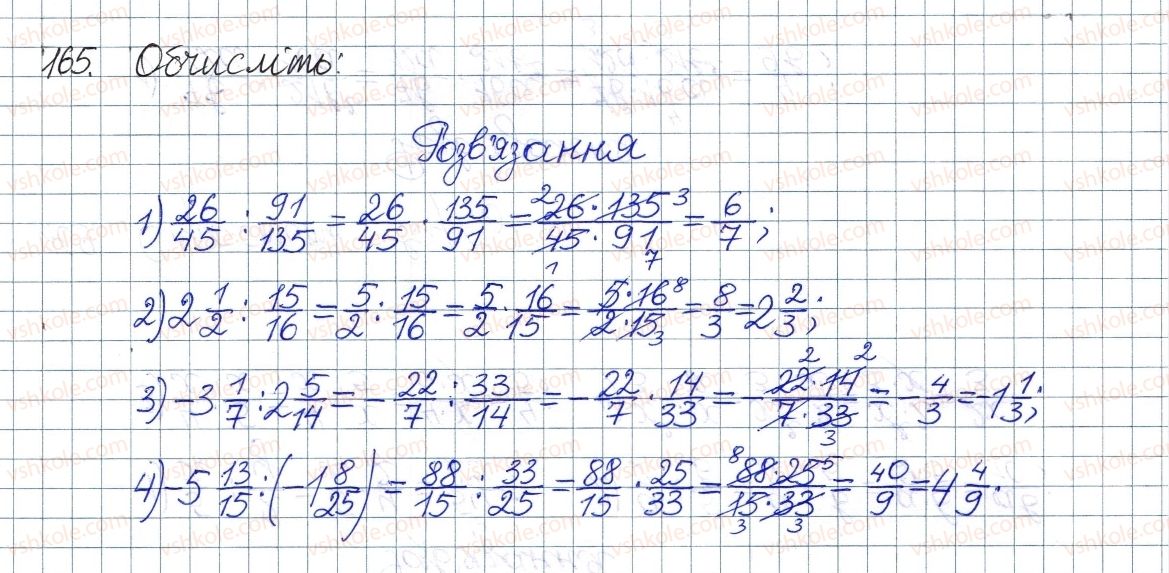 165. Обчисліть:
Розв'язання
1) 26/45 : 91/135 = 26/45 · 135/91 = 2 26 · 135 3 / 45 1 · 91 7 = 6/7;
2) 2 1/2 : 15/16 = 5/2 : 15/16 = 5/2 · 16/15 = 5 · 16 8 / 2 · 15 3 = 8/3 = 2 2/3;
3) -3 1/7 : 2 5/14 = - 22/7 : 33/14 = - 22/7 · 14/33 = - 22 2 · 14 2 / 7 · 33 3 = - 4/3 = -1 1/3;
4) -5 13/15 : (-1 8/25) = 88/15 : 33/25 = 88/15 · 25/33 = 8 88 · 25 5 / 15 3 · 33 3 = 40/9 = 4 4/9.